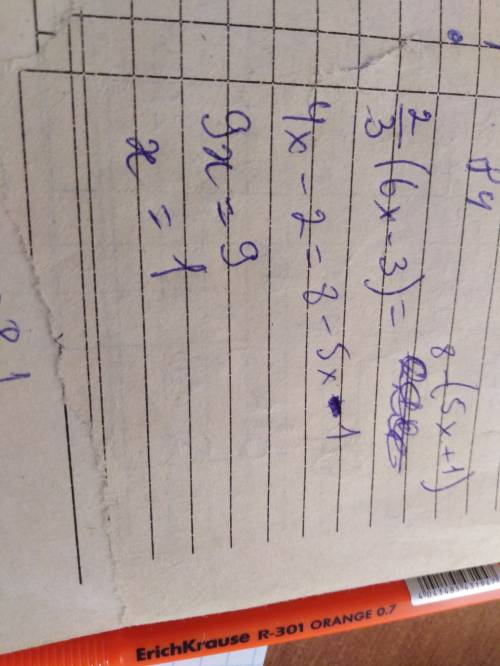 84
8-(5x+1)
2/3 (6x-3)=
4x-2=8-5x-1
9x=9
x=1
ErichKrause R-301 ORANGE 0.7